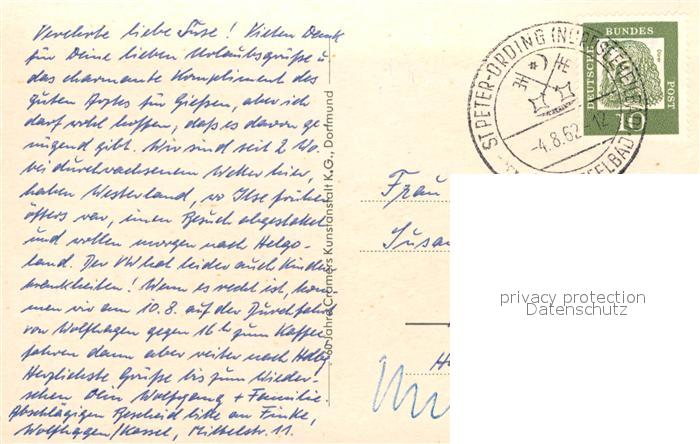 Verehrte liebe Suse! Vielen Dank
für Deine lieben Urlaubsgrüße u.
das charmante Kompliment des
guten Arztes für Gießen, aber ich
darf wohl hoffen, daß es davon ge-
nügend gibt. Wir sind seit 2 Wo.
bei durchwachsenem Wetter hier,
haben Westerland, wo Ilse früher
öfters war, einen Besuch abgestattet
und wollen morgen nach Helgo-
land. Der VW hat leider auch Kinder-
krankheiten! Wenn es recht ist, kom-
men wir am 10.8. auf der Durchfahrt
von Wolfhagen gegen 16 h zum Kaffee,
fahren dann aber weiter nach
Herzlichste Grüße bis zum Wieder-
sehen Dein Wolfgang + Familie.
Abschlägigen Bescheid bitte an Finke,
Wolfhagen/Kassel, Mittelstr. 11.
60 Jahre Cramers Kunstanstalt K.G., Dortmund
ST PETER-ORDING (NORDSEEHEILBAD)
-4.8.62-12
DEUTSCHE BUNDESPOST
10
Frau
Susan
privacy protection
Datenschutz